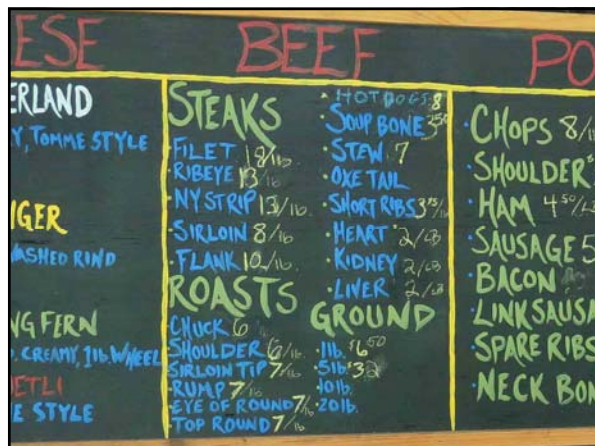 ESE
ERLAND
Y, TOMME STYLE
IGER
WASHED RIND
NG FERN
CREAMY, 1lb. WHEEL
ETLI
E STYLE
BEEF
STEAKS
FILET 18/lb.
RIBEYE 13/lb.
NY STRIP 13/lb.
SIRLOIN 8/lb.
FLANK 10/lb.
ROASTS
CHUCK 6
SHOULDER 6/lb.
SIRLOIN TIP 7/lb.
RUMP 7/lb.
EYE OF ROUND 7/lb.
TOP ROUND 7/lb.
HOT DOGS 8
SOUP BONE 3.50
STEW 7
OXE TAIL
SHORT RIBS 3 75/lb
HEART 2/LB
KIDNEY 2/LB
LIVER 2/LB
GROUND
1lb. $6 50
5lb.
10lb.
20lb.
PO
CHOPS 8/lb
SHOULDER
HAM 4 50/LB
SAUSAGE 5
BACON
LINK SAUSA
SPARE RIBS
NECK BON